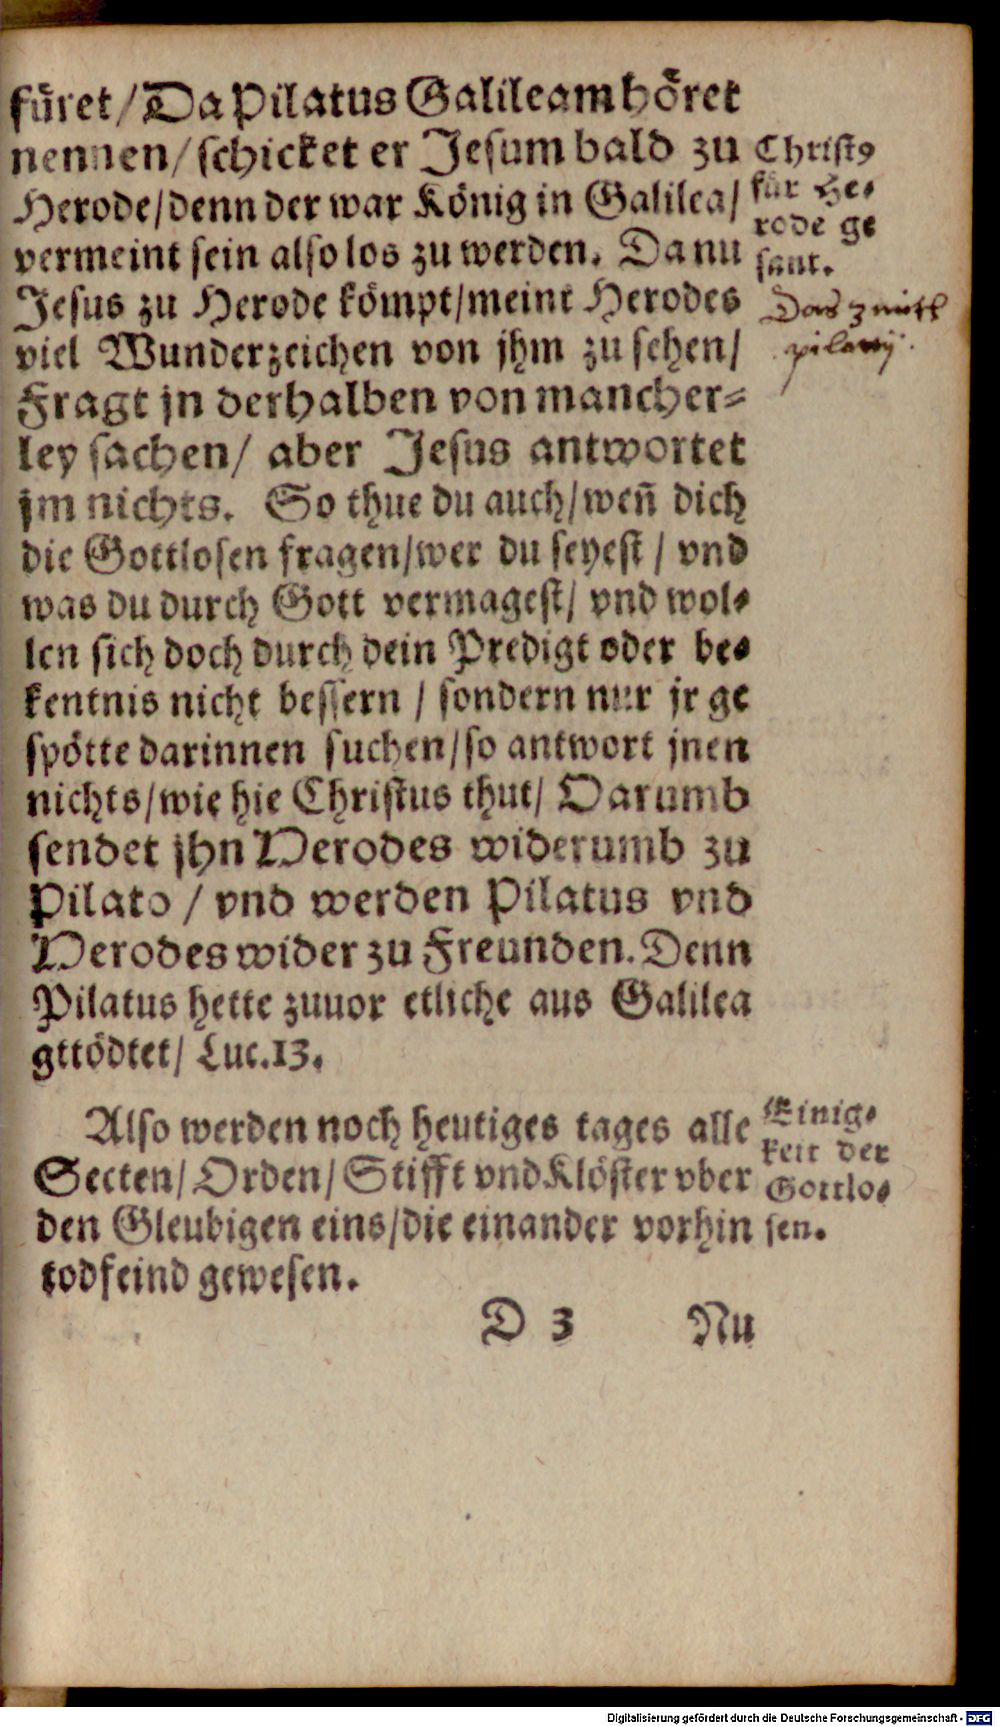 füret/ Da Pilatus Galileam höret
nennen/ schicket er Jesum bald zu
Herode/ denn der war König in Galilea/
vermeint sein also los zu werden. Da nu
Jesus zu Herode kömpt/ meint Herodes
viel Wunderzeichen von jhm zu sehen/
Fragt jn derhalben von mancher-
ley sachen/ aber Jesus antwortet
jm nichts. So thue du auch/ wen̄ dich
die Gottlosen fragen/ wer du seyest / vnd
was du durch Gott vermagest/ vnd wol-
len sich doch durch dein Predigt oder be-
kentnis nicht bessern / sondern nur jr ge
spötte darinnen suchen/ so antwort jnen
nichts/ wie hie Christus thut/ Darumb
sendet jhn Herodes widerumb zu
Pilato / vnd werden Pilatus vnd
Herodes wider zu Freunden. Denn
Pilatus hette zuuor etliche aus Galilea
gttödtet/ Luc. 13.
Christꝰ
für He-
rode ge
sant.
Das 3
Also werden noch heutiges tages alle
Secten/ Orden/ Stifft vnd Klöster vber
den Gleubigen eins/ die einander vorhin
todfeind gewesen.
Einig-
keit der
Gottlo-
sen.
D 3 Nu
Digitalisierung gefördert durch die Deutsche Forschungsgemeinschaft - DFG